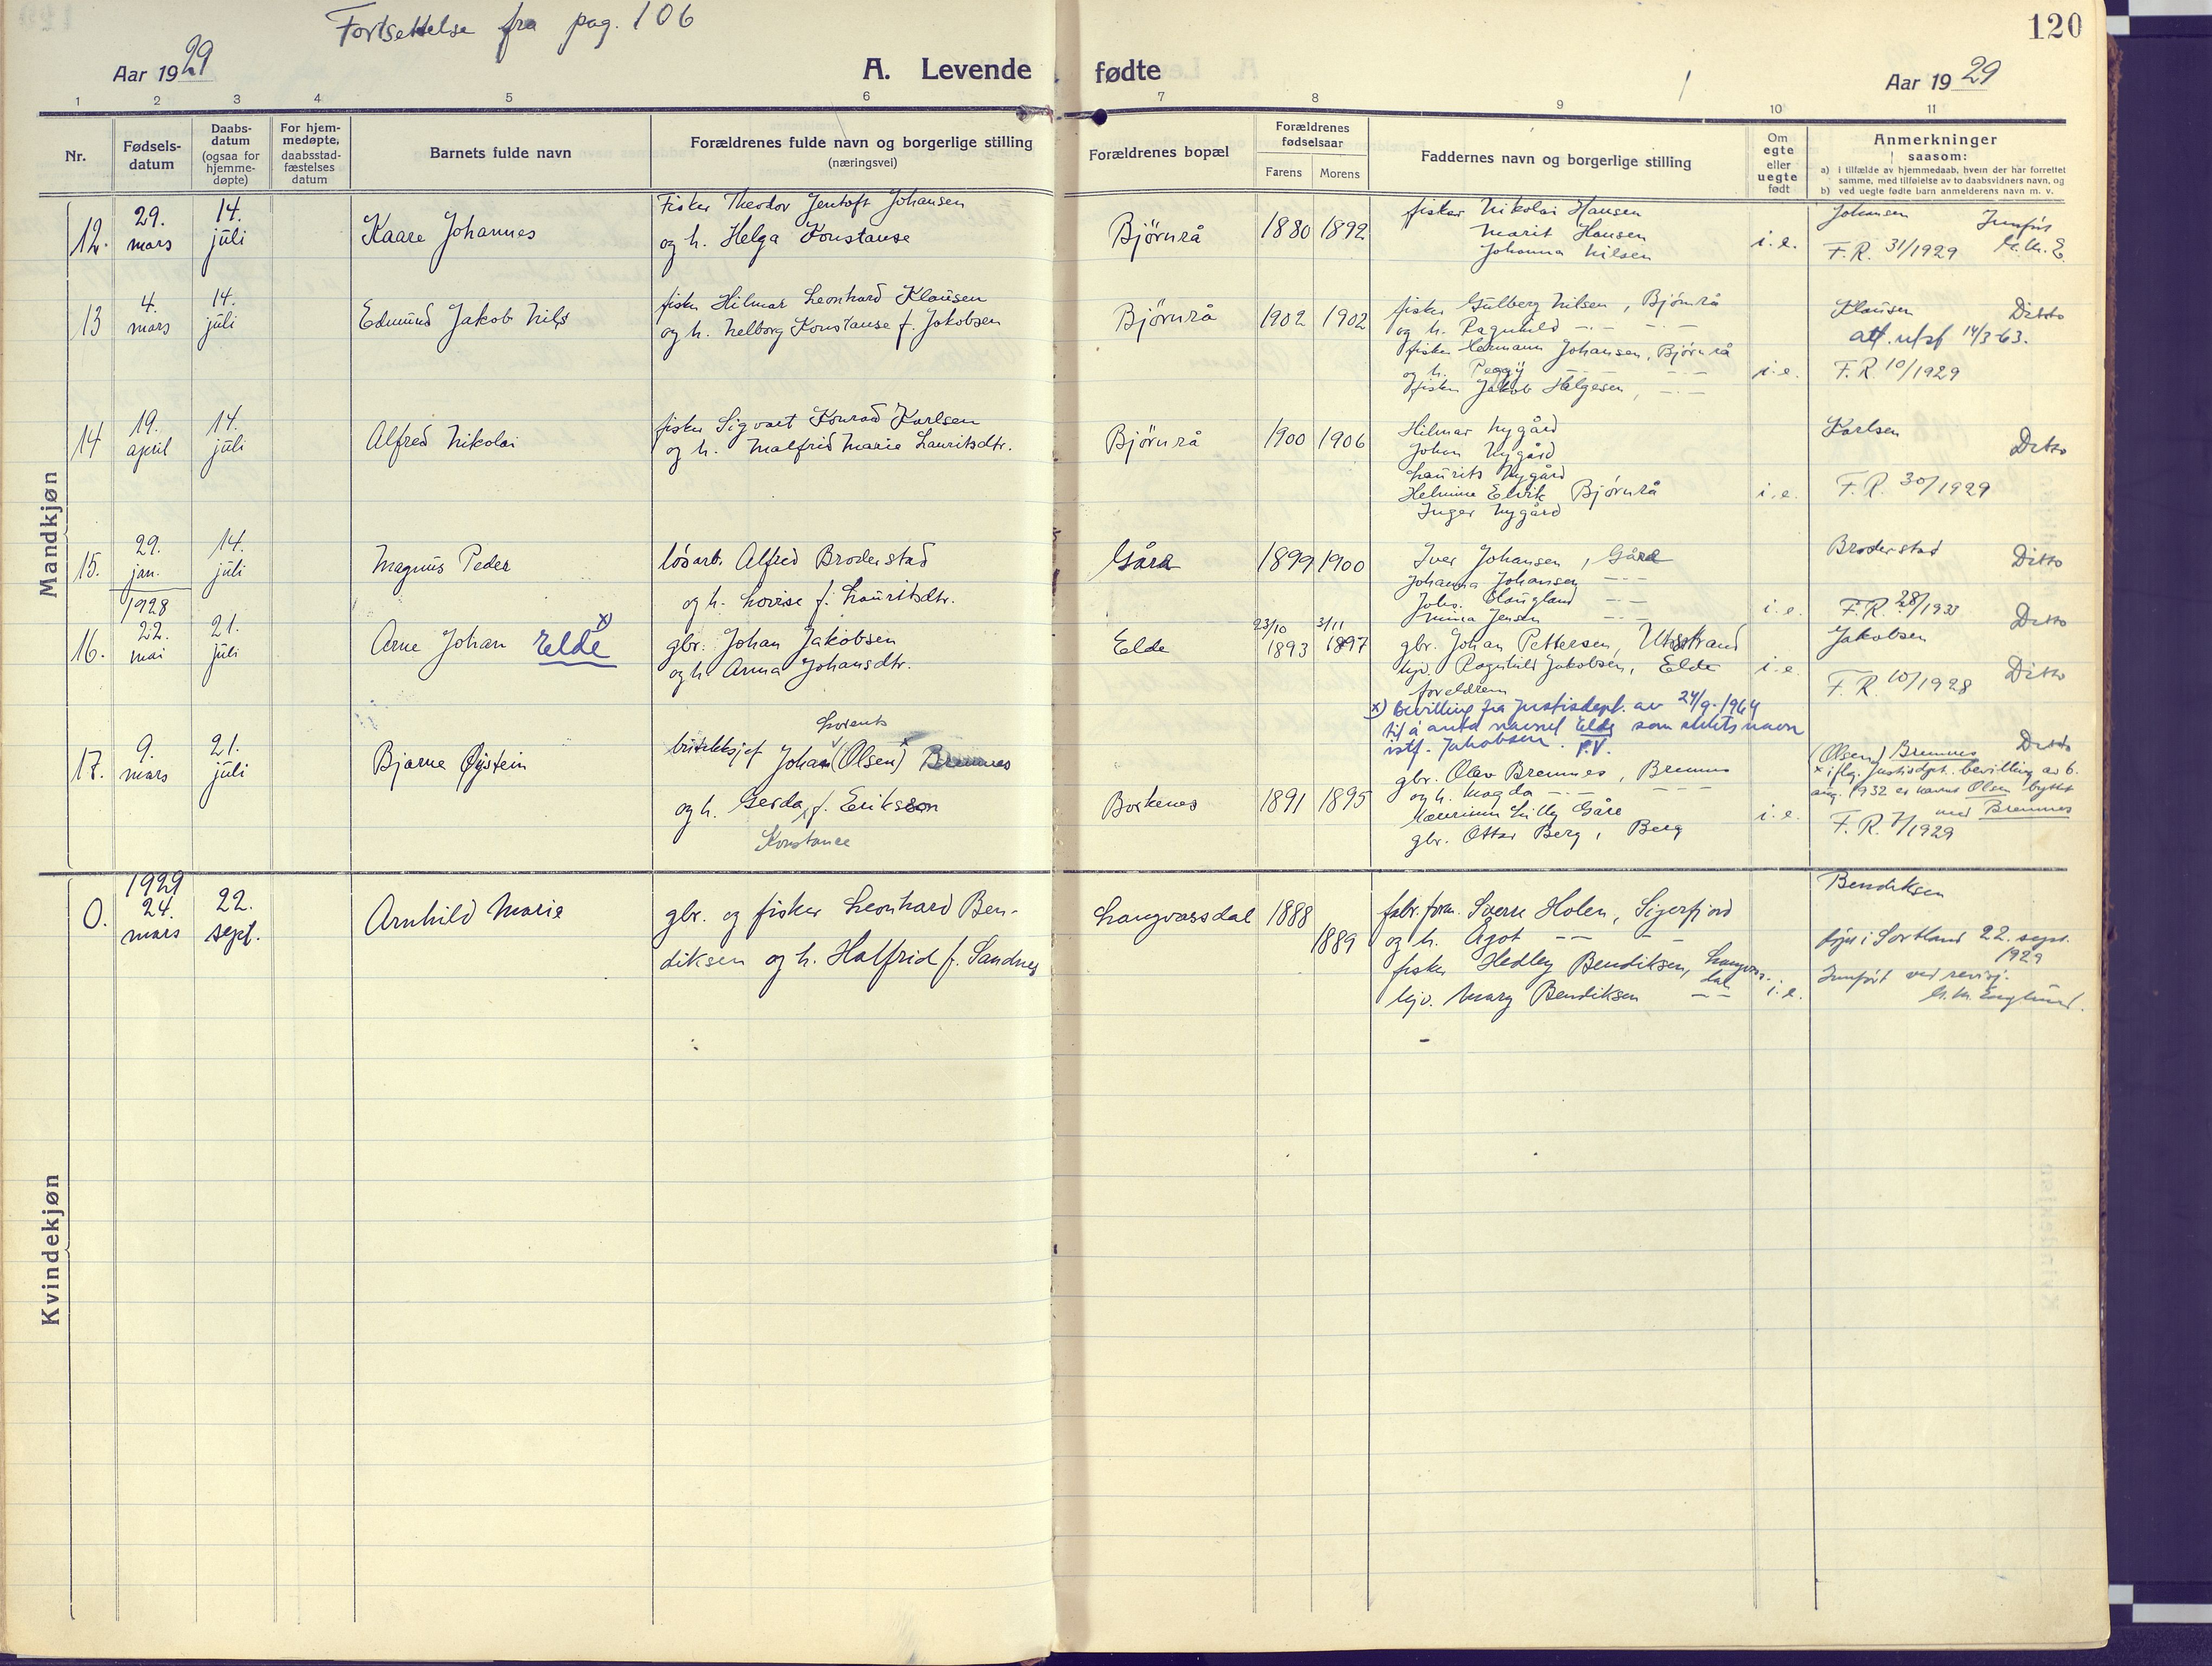 Fortsettelse fra pag. 106
120
Aar 1929
A. Levende fødte
Aar 1929
1 2 3 4 5 6 7 8 9 10 11
Nr.
Fødsels-
datum
Daabs-
datum
(ogsaa for
hjemme-
døpte)
For hjem-
medøpte,
daabsstad-
fæstelses
datum
Barnets fulde navn
Forældrenes fulde navn og borgerlige stilling
(næringsvei)
Forældrenes bopæl
Forældrenes
fødselsaar
Farens Morens
Faddernes navn og borgerlige stilling
Om
egte
eller
uegte
født
Anmerkninger
saasom:
a) i tilfælde av hjemmedaab, hvem der har forrettet
samme, med tilføielse av to daabsvidners navn, og
b) ved uegte fødte barn anmelderens navn m. v.
Mandkjøn
12.
29.
mars
14.
juli
Kaare Johannes
Fisker Theodor Jentoft Johansen
og h. Helga Konstanse
Bjørnrå
1880 1892
fisker Nikolai Hansen
Marit Hansen
Johanna Nilsen
i.e.
Johansen Innført
F.R. 31/1929 H.M.E.
13
4.
mars
14.
juli
Edmund Jakob Nils
fisker Hilmar Leonhard Klausen
og h. Nelborg Konstanse f. Jakobsen
Bjørnrå
1902 1902
fisker Gulberg Nilsen, Bjørnrå
og h. Ragnhild -.- -.-
fisker Hermann Johansen, Bjørnrå
og h. Peggy -.- -.-
fisker Jakob Helgesen, -.-
i.e.
Klausen Ditto
att. utst 14/3-63.
F.R. 10/1929
14
19.
april
14.
juli
Alfred Nikolai
fisker Sigvart Konrad Karlsen
og h. Malfrid Marie Lauritsdtr.
Bjørnrå
1900 1906
Hilmar Nygård
Johan Nygård
Laurits Nygård
Helmine Elvik Bjørnrå
Inger Nygård
i.e.
Karlsen
Ditto
F.R. 30/1929
15.
29.
jan.
1928
14.
juli
Magnus Peder
løsarb. Alfred Broderstad
og h. Lovise f. Lauritsdtr.
Gåra
1899 1900
Iver Johansen, Gåra
Johanna Johansen -.-
Johs. Haugland -.-
Minna Jensen -.-
i.e.
Broderstad Ditto
F.R. 28/1933
16.
22.
mai
21.
juli
Arne Johan Elde x)
gbr. Johan Jakobsen
og h. Anna Johansdtr.
Elde
23/10 3/11
1893 1897
gbr. Johan Pettersen, Utstrand
hjv. Ragnhild Jakobsen, Elde
foreldrene
i.e.
Ditto
Jakobsen
F.R. 10/1928 Ditto
x) Bevilling fra Justisdept. av 24/9-1964
til å anta navnet Elde som slektsnavn
istf. Jakobsen. P.V.
17.
9.
mars
21.
juli
Bjarne Øystein
Lorents
Johan (Olsen) x Bremnes
og h. Gerda, f. Eriksson
Konstance
Borkenes
1891 1895
gbr. Olav Bremnes, Bremnes
og h. Magda -.- - - -
Lilly Gåre
gbr. Ottar Berg, Berg
i.e.
Ditto
(Olsen) Bremnes
x iflg. Justisdpt. bevilling av 6.
aug. 1932 er navnet Olsen byttet
med Bremnes
F.R. 7/1929
Kvindekjøn
0.
1929
24.
mars
22.
sept.
Arnhild Marie
gbr. og fisker Leonhard Ben-
diksen og h. Halfrid f. Sandnes
Langvassdal
1888
1889
fabr. form. Sverre Holen, Sigerfjord
og h. Ågot -- --
fisker Hedley Bendiksen, Langvass-
dal
hjv. Mary Bendiksen --
i.e.
Bendiksen
døpt i Sortland 22. sept.
1929
Innført ved revisj.
H.M. Englund.